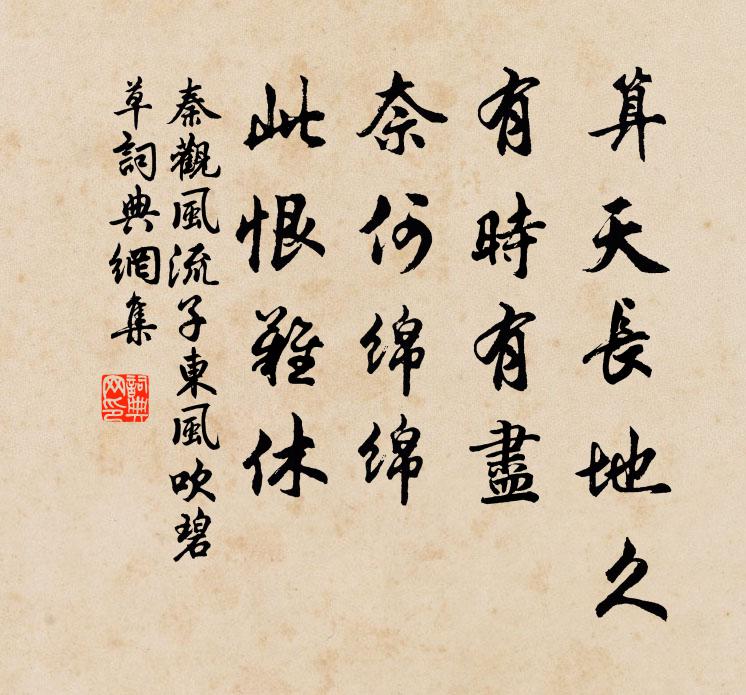 算天長地久
有時有盡
奈何綿綿
此恨難休
秦觀風流子東風吹碧
草詞典網集
詞典网印